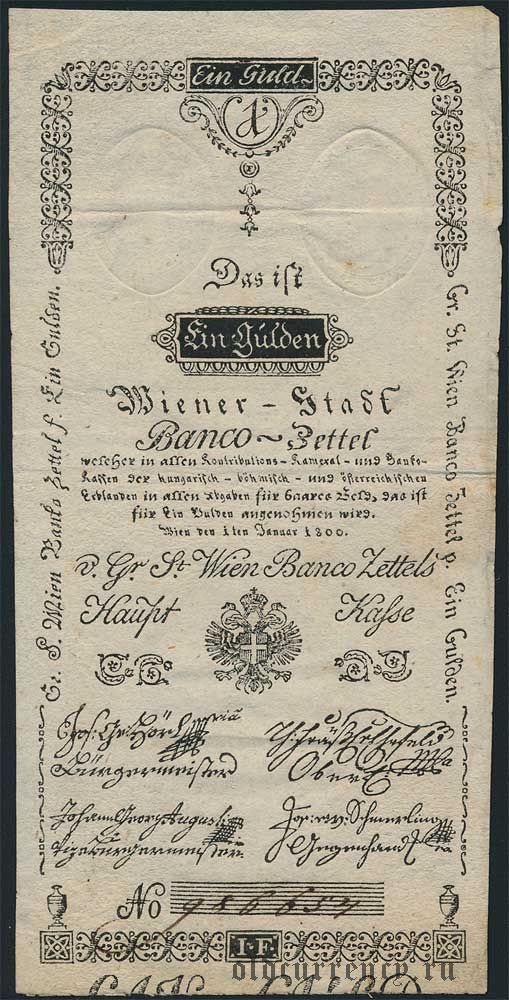 Ein Guld~
1
Das ist
Ein Gulden
Wiener - Stadt
Banco ~ Zettel
welcher in allen Kontributions - Kameral - und Banko-
Kassen der hungarisch - böhmisch - und österreichischen
Erblanden in allen Abgaben für baares Geld, das ist
für Ein Gulden angenohmen wird.
Wien den 1ten Januar 1800.
v. Gr. St. Wien Banco Zettels
Haupt Kasse
Gr. S. Wien Banko Zettel f. Ein Gulden.
Gr. St. Wien Banco Zettel p. Ein Gulden.
Jos: Ge: Hörl
Bürgermeister
Ober
Johann Georg Augusti
Vizebürgermeister
Jos: v. Schmerling
Gegenhand
No 986654
I-F.
oldcurrency.ru